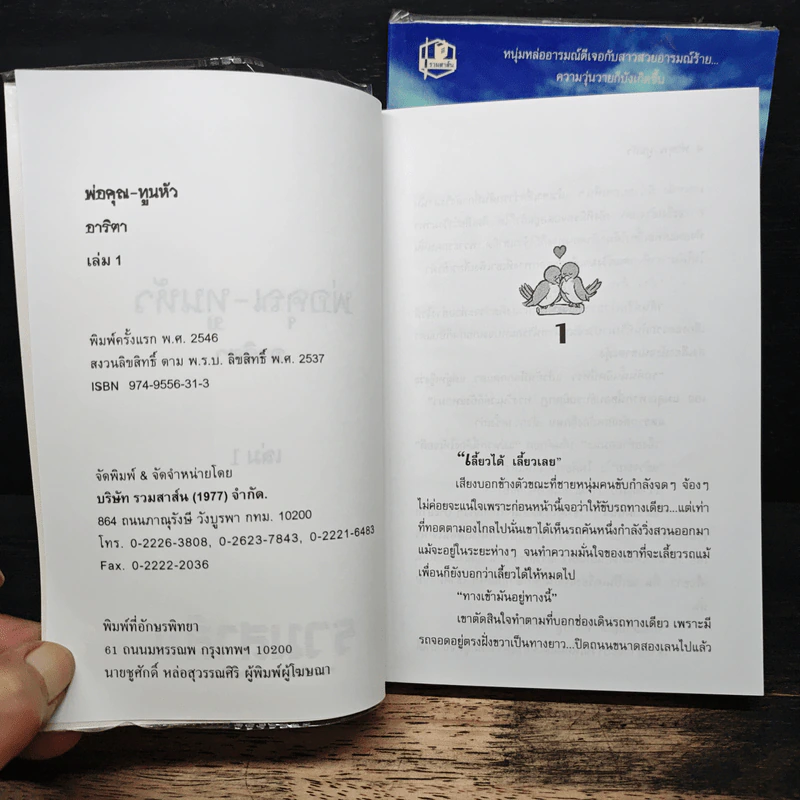 รวมสาส์น
หนุ่มหล่ออารมณ์ดีเจอกับสาวสวยอารมณ์ร้าย...
ความวุ่นวายก็บังเกิดขึ้น
พ่อคุณ-ทูนหัว
อาริตา
เล่ม 1
พิมพ์ครั้งแรก พ.ศ. 2546
สงวนลิขสิทธิ์ ตาม พ.ร.บ. ลิขสิทธิ์ พ.ศ. 2537
ISBN 974-9556-31-3
จัดพิมพ์ & จัดจำหน่ายโดย
บริษัท รวมสาส์น (1977) จำกัด.
864 ถนนภาณุรังษี วังบูรพา กทม. 10200
โทร. 0-2226-3808, 0-2623-7843, 0-2221-6483
Fax. 0-2222-2036
พิมพ์ที่อักษรพิทยา
61 ถนนมหรรณพ กรุงเทพฯ 10200
นายชูศักดิ์ หล่อสุวรรณศิริ ผู้พิมพ์ผู้โฆษณา
1
“เลี้ยวได้ เลี้ยวเลย”
เสียงบอกข้างตัวขณะที่ชายหนุ่มคนขับกำลังจดๆ จ้องๆ
ไม่ค่อยจะแน่ใจเพราะก่อนหน้านี้เจอว่าให้ขับรถทางเดียว...แต่เท่า
ที่ทอดตามองไกลไปนั่นเขาได้เห็นรถคันหนึ่งกำลังวิ่งสวนออกมา
แม้จะอยู่ในระยะห่างๆ จนทำความมั่นใจของเขาที่จะเลี้ยวรถแม้
เพื่อนก็ยังบอกว่าเลี้ยวได้ให้หมดไป
“ทางเข้ามันอยู่ทางนี้”
เขาตัดสินใจทำตามที่บอกช่องเดินรถทางเดียว เพราะมี
รถจอดอยู่ตรงฝั่งขวาเป็นทางยาว...ปิดถนนขนาดสองเลนไปแล้ว